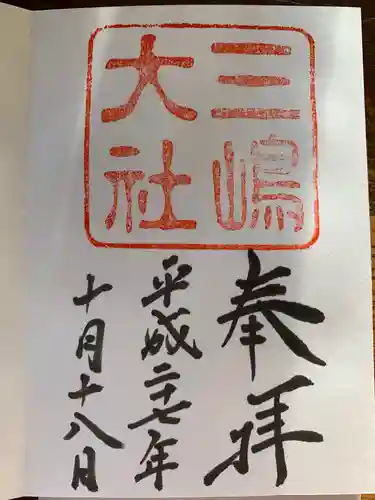 三嶋
大社
奉拝
平成二十七年
十月十八日